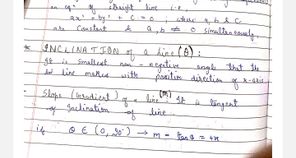 an eqn of straight line i.e.,
ax + by + c = 0 ; where a, b & c
are constant & a, b ≠ 0 simultaneously.
* INCLINATION of a line (θ) :
It is smallest non-negative angle that the
line makes with positive direction of x-axis
Slope (Gradient) of a line (m) It is tangent
of Inclination of line.
if θ ∈ (0, 90°) → m = tanθ = +ve